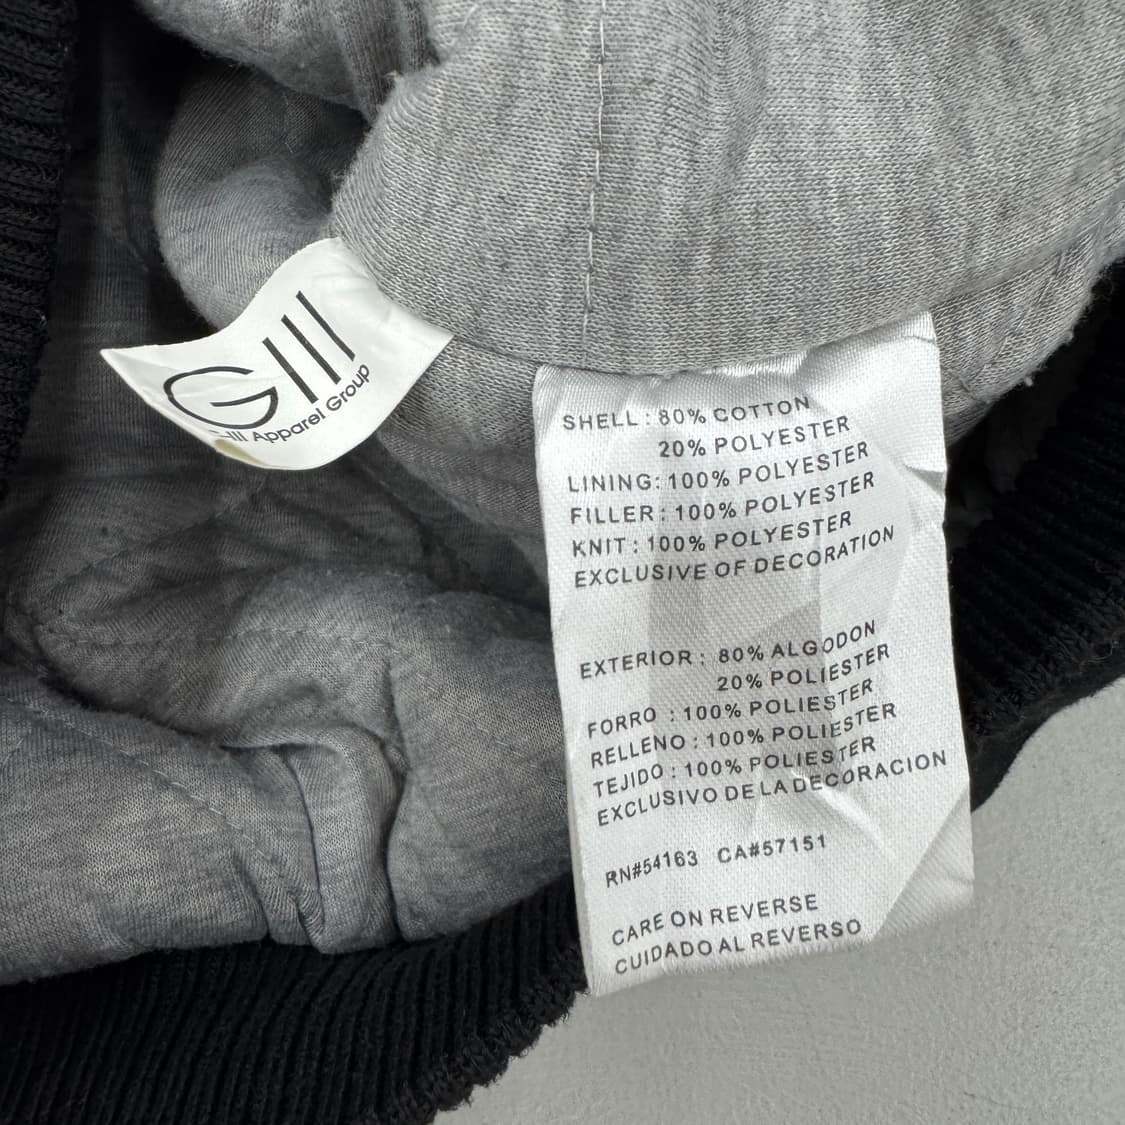 GIII
G-III Apparel Group
SHELL : 80% COTTON
20% POLYESTER
LINING: 100% POLYESTER
FILLER : 100% POLYESTER
KNIT : 100% POLYESTER
EXCLUSIVE OF DECORATION
EXTERIOR : 80% ALGODON
20% POLIESTER
FORRO : 100% POLIESTER
RELLENO : 100% POLIESTER
TEJIDO : 100% POLIESTER
EXCLUSIVO DE LA DECORACION
RN#54163 CA#57151
CARE ON REVERSE
CUIDADO AL REVERSO